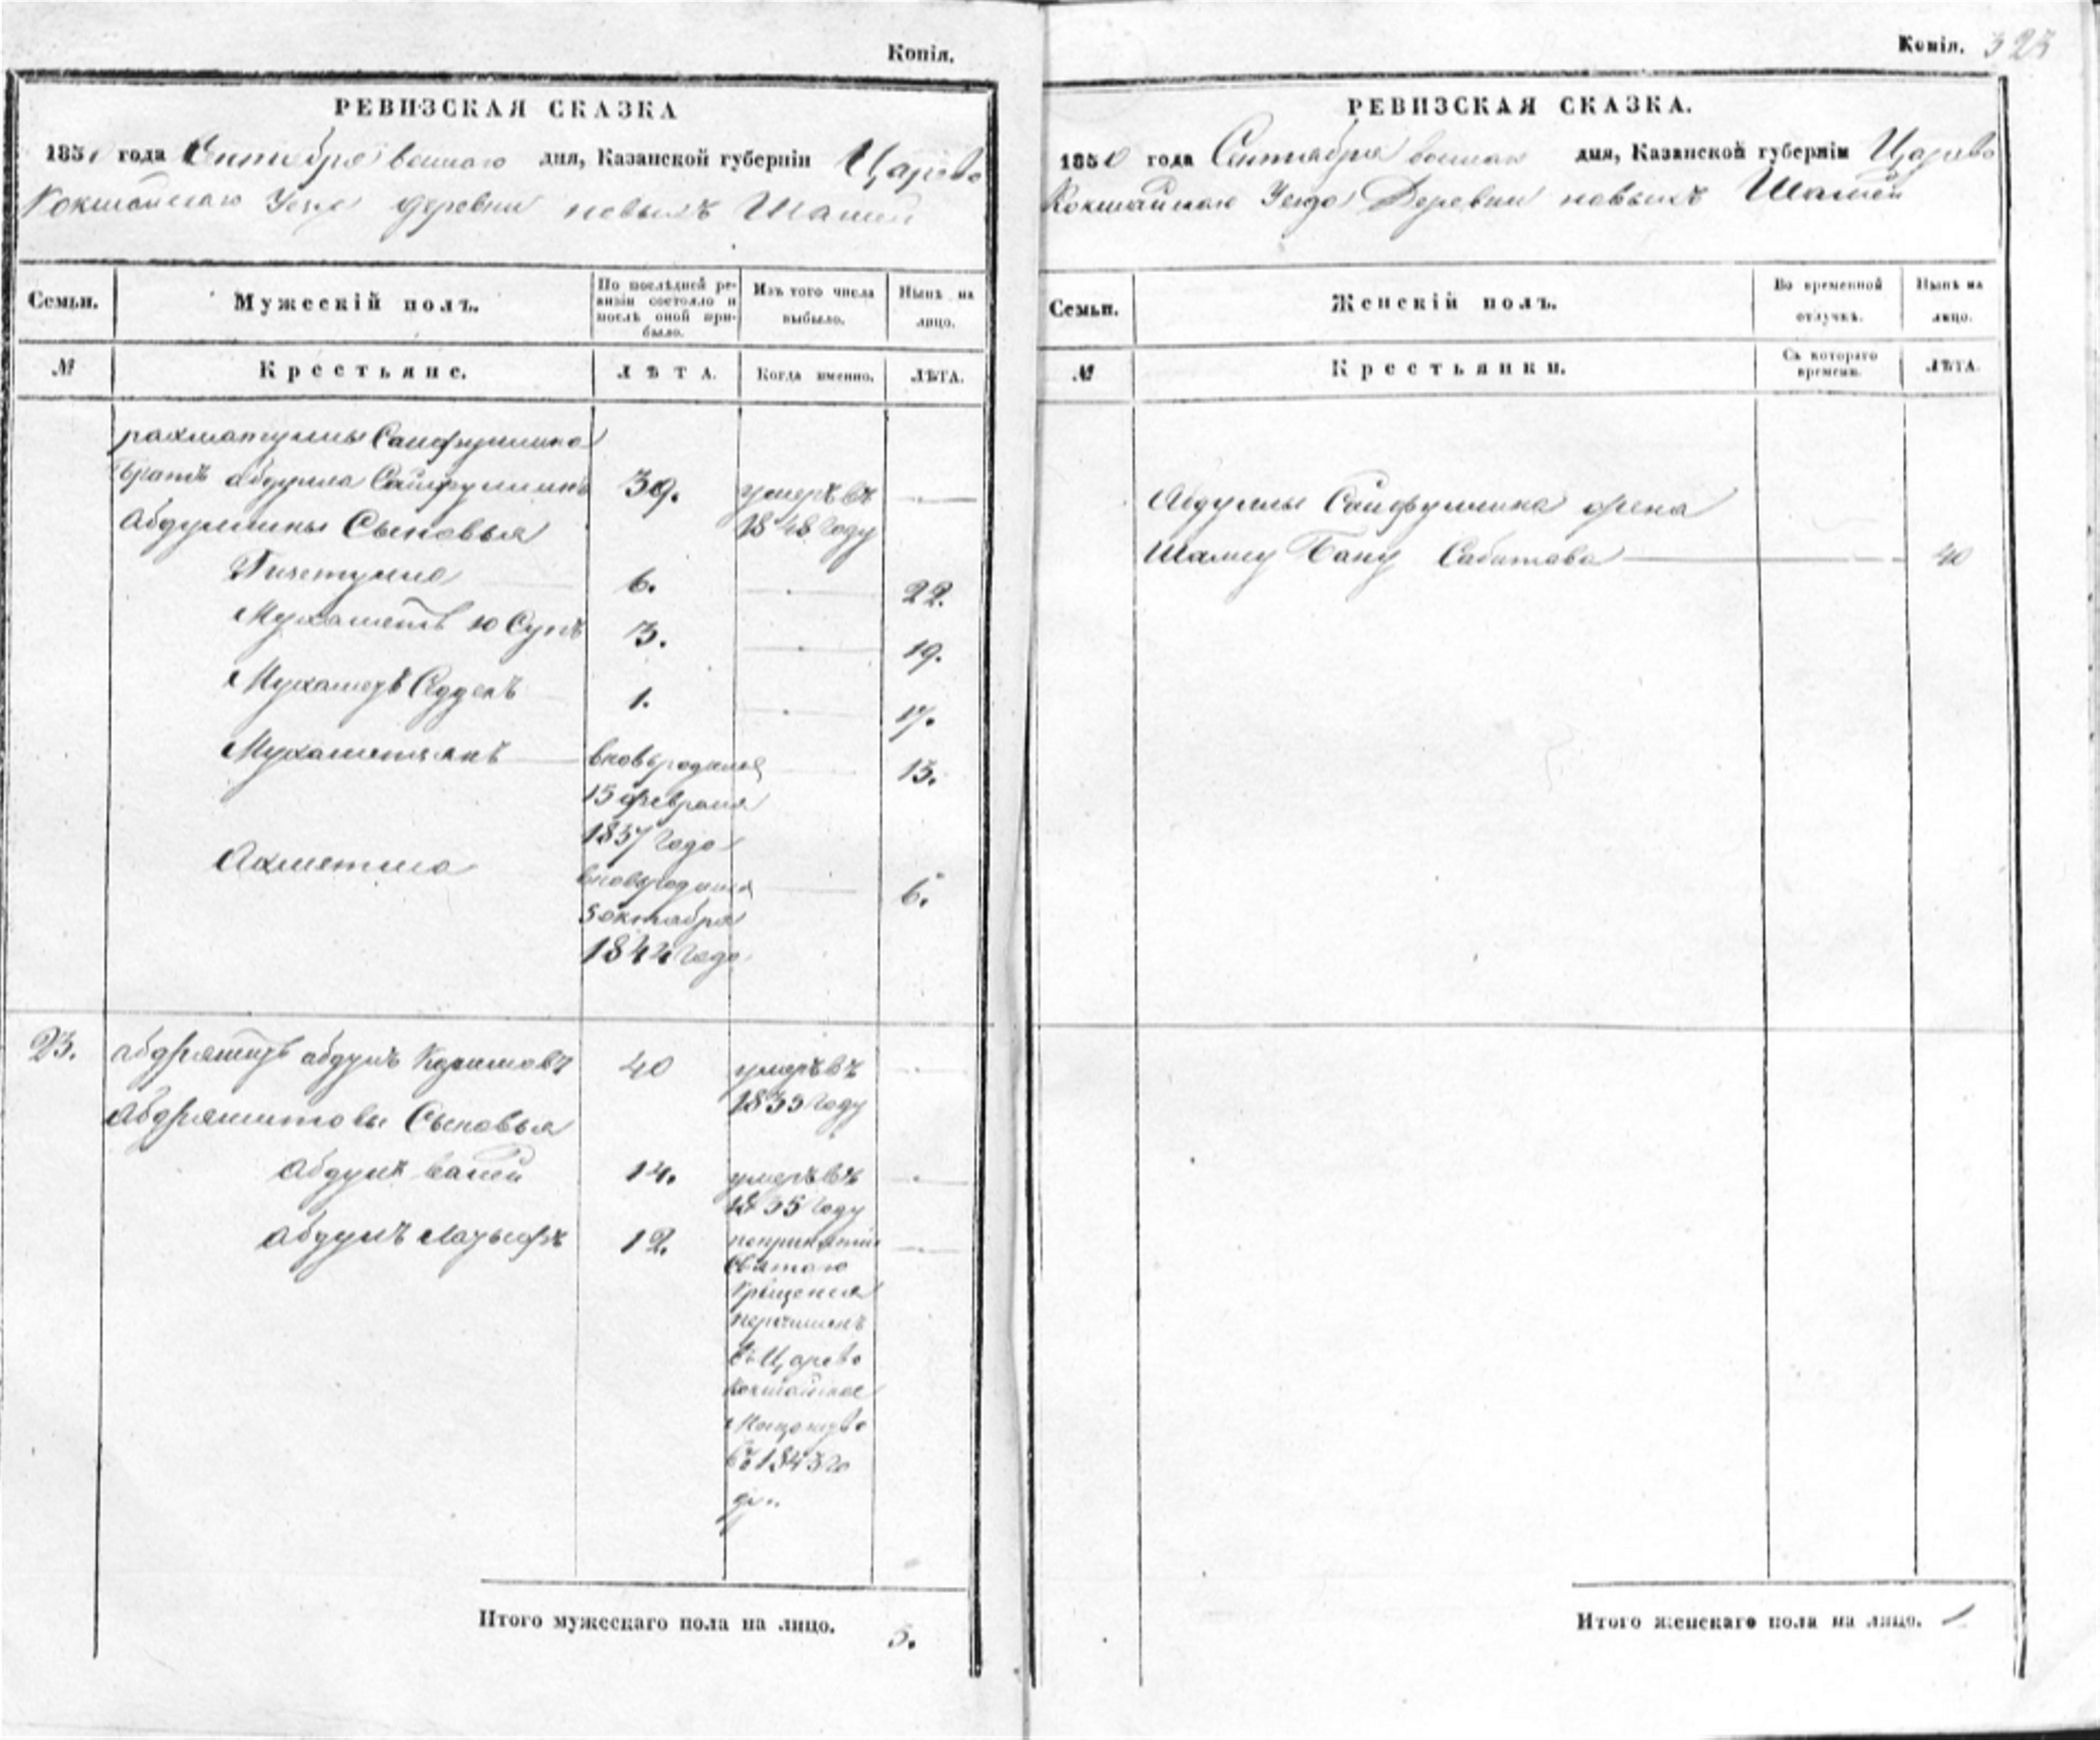 Копія.
РЕВИЗСКАЯ СКАЗКА
1850 года Сентября дня, Казанской губерніи Царево
Кокшайскаго Уезда деревни новыхъ Шашей
Семьи.
Мужескій полъ.
По послѣдней ревизіи состояло и послѣ оной прибыло.
Изъ того числа выбыло.
Нынѣ на лицо.
№
Крестьяне.
ЛѢТА.
Когда именно.
ЛѢТА.
рахматуллы Сайфуллина
братъ абдулла Сайфуллинъ 39. умеръ въ
Абдуллины Сыновья 1848 году
6. 22.
Мухаметъ юСупъ 3. 19.
1. 17.
Мухаметзянъ вновьродился 13.
15 февраля
1837 года
Ахметша вновьродился 6.
5 октября
1844 года
23. абдрашитъ абдулъ Каримовъ 40 умеръ въ
1835 году
Абдрашитовы Сыновья
абдулъ валей 14. умеръ въ
1835 году
абдулъ Латыфъ 12. попринятіи
Святаго
Крещенія
перечисленъ
въ Царево
Кокшайское
Мещанство
въ 1843 го
ду.
Итого мужескаго пола на лицо. 5.
Копія. 323
РЕВИЗСКАЯ СКАЗКА.
1850 года Сентября дня, Казанской губерніи Царево
Кокшайскаго Уезда Деревни новыхъ Шашей
Семьи.
Женскій полъ.
Во временной отлучкѣ.
Нынѣ на лицо.
№
Крестьянки.
Съ котораго времени.
ЛѢТА.
Абдуллы Сайфуллина жена
Шамсу Бану Сабитова 40
Итого женскаго пола на лицо. 1